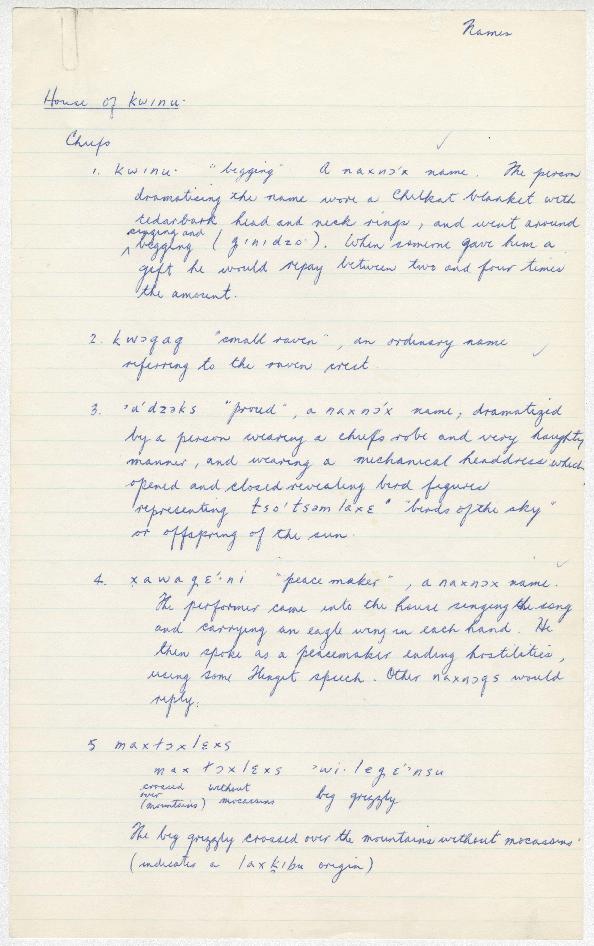 Names
House of kwınu·
Chiefs
1. kwınu· "begging" A naxnɔ'x name. The person
dramatising the name wore a Chilkat blanket with
cedarbark head and neck rings, and went around
singing and
begging (g·ı·nıdzɔ·). When someone gave him a
gift he would repay between two and four times
the amount.
2. kwɔgag "small raven", an ordinary name
referring to the raven crest.
3. ɔa'dzɔks "proud", a naxnɔ'x name; dramatized
by a person wearing a chiefs robe and very haughty
manner, and wearing a mechanical headdress which
opened and closed revealing bird figures
representing tso'tsəmlaxɛ· "birds of the sky"
or offspring of the sun.
4. xawagɛ'·ni "peace maker", a naxnɔx name.
The performer came into the house singing the song
and carrying an eagle wing in each hand. He
then spoke as a peacemaker ending hostilities,
using some Tlingit speech. Other naxnɔgs would
reply.
5 maxtɔxlɛxs
max tɔxlɛxs ɔwi·legɛ'ɔnsu
crossed without big grizzly
over
(mountains) mocassins
The big grizzly crossed over the mountains without mocassins·
(indicates a laxk̲ıbu origin)